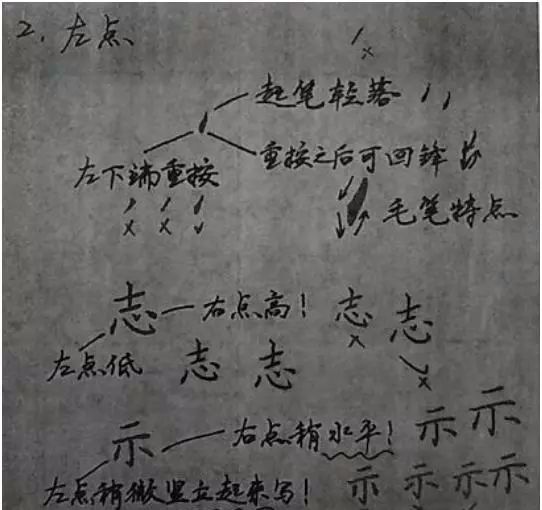 2. 左点
×
起笔轻落
重按之后可回锋
左下端重按
× × ✓
毛笔特点
志 右点高! 志 志
× ×
左点低 志 志
示 右点稍水平! 示 示
左点稍微竖立起来写! 示 示 示 示